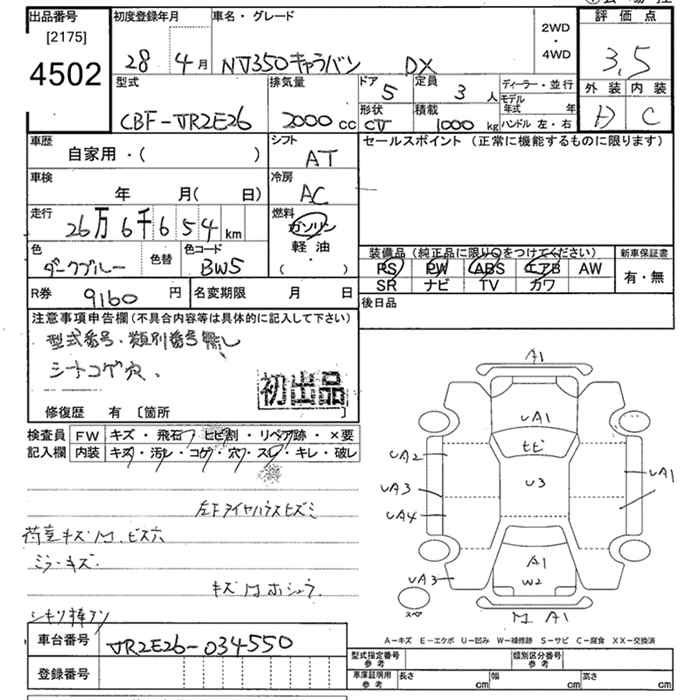 出品番号
[2175]
4502
初度登録年月
28年4月
車名・グレード
NV350キャラバン DX
2WD
・
4WD
評価点
3.5
外装 内装
D C
型式
CBF-VR2E26
排気量
2000cc
ドア
5
定員
3人
ディーラー・並行
モデル年式 年
形状
CV
積載
1000kg
ハンドル 左・右
車歴
自家用・( )
シフト
AT
セールスポイント(正常に機能するものに限ります)
車検
年 月(日)
冷房
AC
走行
26万6千654km
燃料
ガソリン
軽油
・
( )
色
ダークブルー
色替
色コード
BW5
装備品(純正品に限り○をつけてください)
PS PW ABS エアB AW
SR ナビ TV カワ
新車保証書
有・無
R券
9160円
名変期限 月 日
後日品
注意事項申告欄(不具合内容等は具体的に記入して下さい)
型式番号・類別番号無し
シートコゲ穴、
初出品
修復歴 有 [箇所 ]
検査員記入欄
FW キズ・飛石・ヒビ割・リペア跡・×要
内装 キズ・汚レ・コゲ・穴・スレ・キレ・破レ
左F タイヤハウスヒズミ
荷室キズ M、ビス穴
ミラーキズ
A1
UA1
ヒビ
U3
UA2
UA3
UA4
UA3
UA1
A1
W2
スペア
A1
A-キズ E-エクボ U-凹み W-補修跡 S-サビ C-腐食 XX-交換済
車台番号
VR2E26-034550
登録番号
型式指定番号
参考
類別区分番号
参考
車庫証明用
参考
長さ cm
幅 cm
高さ cm